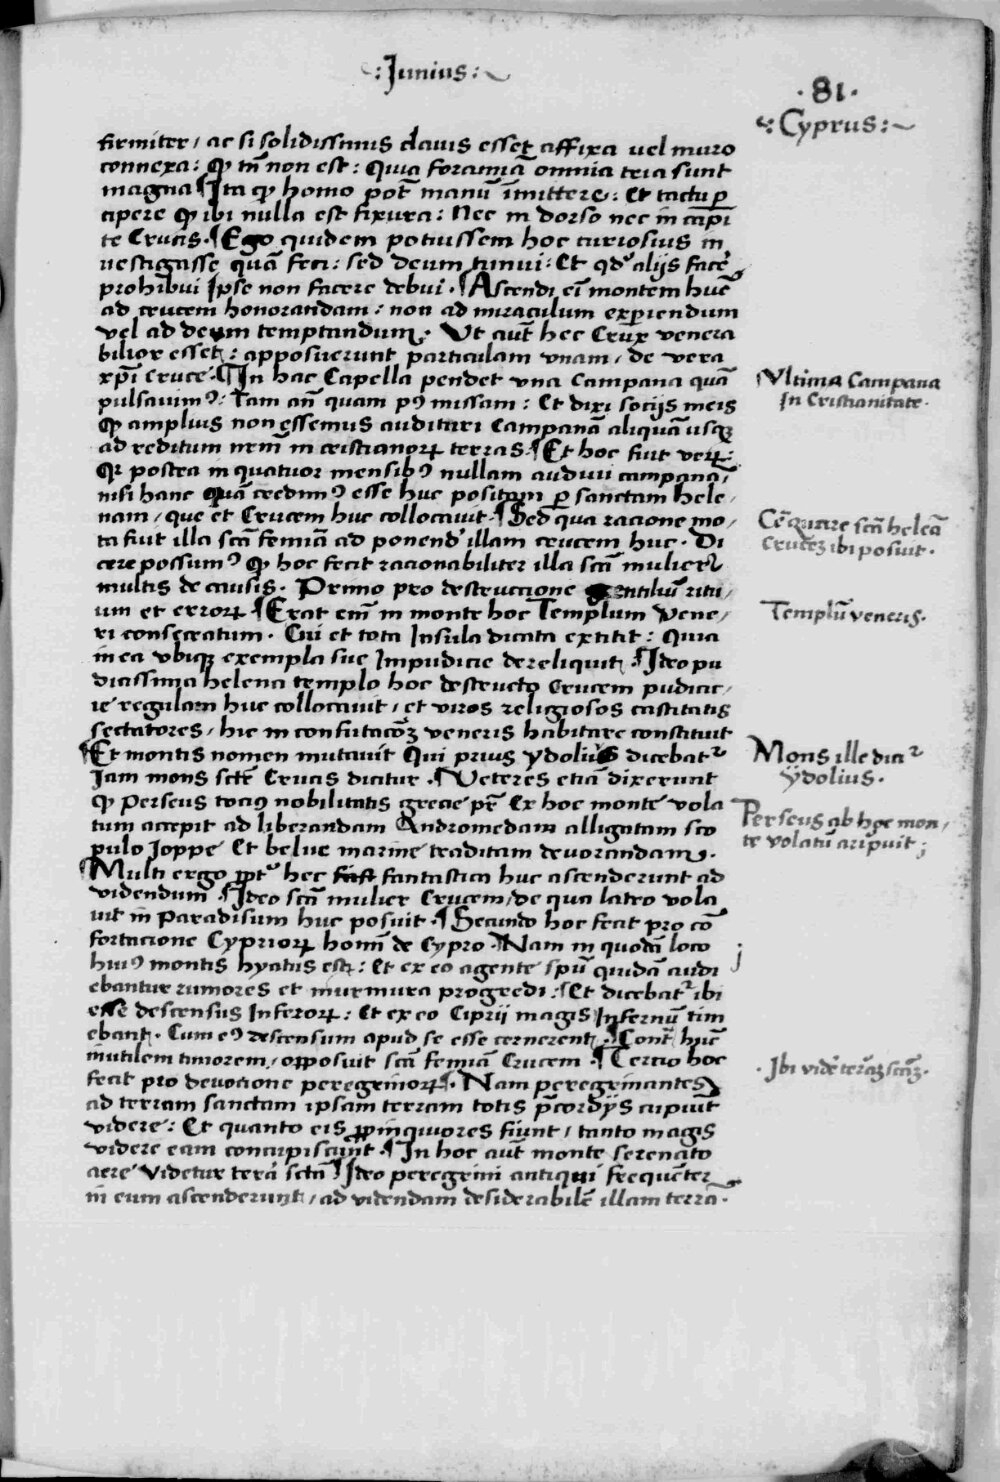 ·:Junius:~
·81·
·:Cyprus:~
firmiter / ac si solidissimis clavis esset affixa vel muro
connexa: qꝫ tn̄ non est: Quia foramīa omnia tria sunt
magna ¶ Ita qꝫ homo pot̄ manū īmittere: Et tactu ꝑ
cipere qꝫ ibi nulla est fixura: Nec in dorso nec in capi
te Crucis · ¶ Ego quidem potuissem hoc curiosius in
vestigasse quā feci: sed deum timui: Et qd' alijs facē
prohibui Ipse non facere debui · ¶ Ascendi eī montem hūc
ad crucem honorandam: non ad miraculum experiendum
vel ad deum temptandum · Ut aut̄ hec Crux venera
bilior esset: apposuerunt particulam vnam / de vera
xp̄i cruce · ¶ In hac Capella pendet vna campana quā
pulsavimꝰ: Tam an̄ quam pꝰ missam: Et dixi socijs meis
qꝫ amplius non essemus audituri Campanā aliquā usqꝫ
ad reditum nrm̄ in cristianoꝝ terras · ¶ Et hoc fuit veꝝ:
Qꝛ postea in quatuor mensibꝰ nullam audivi campanā /
nisi hanc quā credimꝰ esse huc positam ꝑ sanctam Hele /
nam / que et Crucem huc collocavit · ¶ Sed qua racione mo /
ta fuit illa scā femīa ad ponend' illam crucem huc · Di
cere possumꝰ qꝫ hoc fecit racionabiliter illa scā mulier
multis de causis · Primo pro destruccione gentiliū ritu /
um et erroꝝ · ¶ Erat enī in monte hoc Templum Vene /
ri consecratum · Cui et tota Insula dicata extitit: Quia
in ea vbiqꝫ exempla sue Impudicie dereliquit · ¶ Ideo pu
dicissima helena templo hoc destructo Crucem pudicic /
ie regulam huc collocavit / et viros religiosos castitatis
sectatores / hic in confutacōꝫ veneris habitare constituit
¶ Et montis nomen mutavit Qui prius ydolius dicebat᷑
Jam mons scte Crucis dicitur · ¶ Veteres eciā dixerunt
qꝫ Perseus tociꝰ nobilitatis grecie pr̄ Ex hoc monte vola
tum accepit ad liberandam Andromedam alligatam sco
pulo Joppe Et belue marine traditam devorandam ·
¶ Multi ergo ꝓpt' hec fantastica huc ascenderunt ad
videndum · ¶ Ideo scā mulier Crucem / de qua latro vola
vit in Paradisum huc posuit · ¶ Secundo hoc fecit pro cō
fortacione Cyprioꝝ homī de Cypro · Nam in quodā loco
huiꝰ montis hyatus est: Et ex eo agente spū quidā audi
ebantur rumores et murmura progredi: ¶ Et dicebat᷑ ibi
esse descensus Inferoꝝ: Et ex eo Ciprii magis Infernū tim
ebant · Cum eꝰ descensum apud se esse cernerent · ¶ Cont̄ hūc
inutilem timorem / opposuit scā femīa Crucem · ¶ Tercio hoc
fecit pro devocione peregrinoꝝ · Nam peregrinantes
ad terram sanctam ipsam terram totis p̄cordijs cupiūt
videre: Et quanto eis ꝓpinquiores fiunt / tanto magis
videre eam concupiscunt · ¶ In hoc aut̄ monte serenato
aere videtur terā sctā ¶ Ideo peregrini antiqui frequēter
in eum ascenderunt / ad videndam desiderabilē illam terrā ·
Ultima Campana
In Cristianitate ·
scā helēa
Crucēꝫ ibi posuit ·
Templū veneris ·
Mons ille dicit᷑
ydolius ·
Perseus ab hoc mon /
te volatū aripuit ;
j
· Ibi vidēt terāꝫ scāꝫ ·